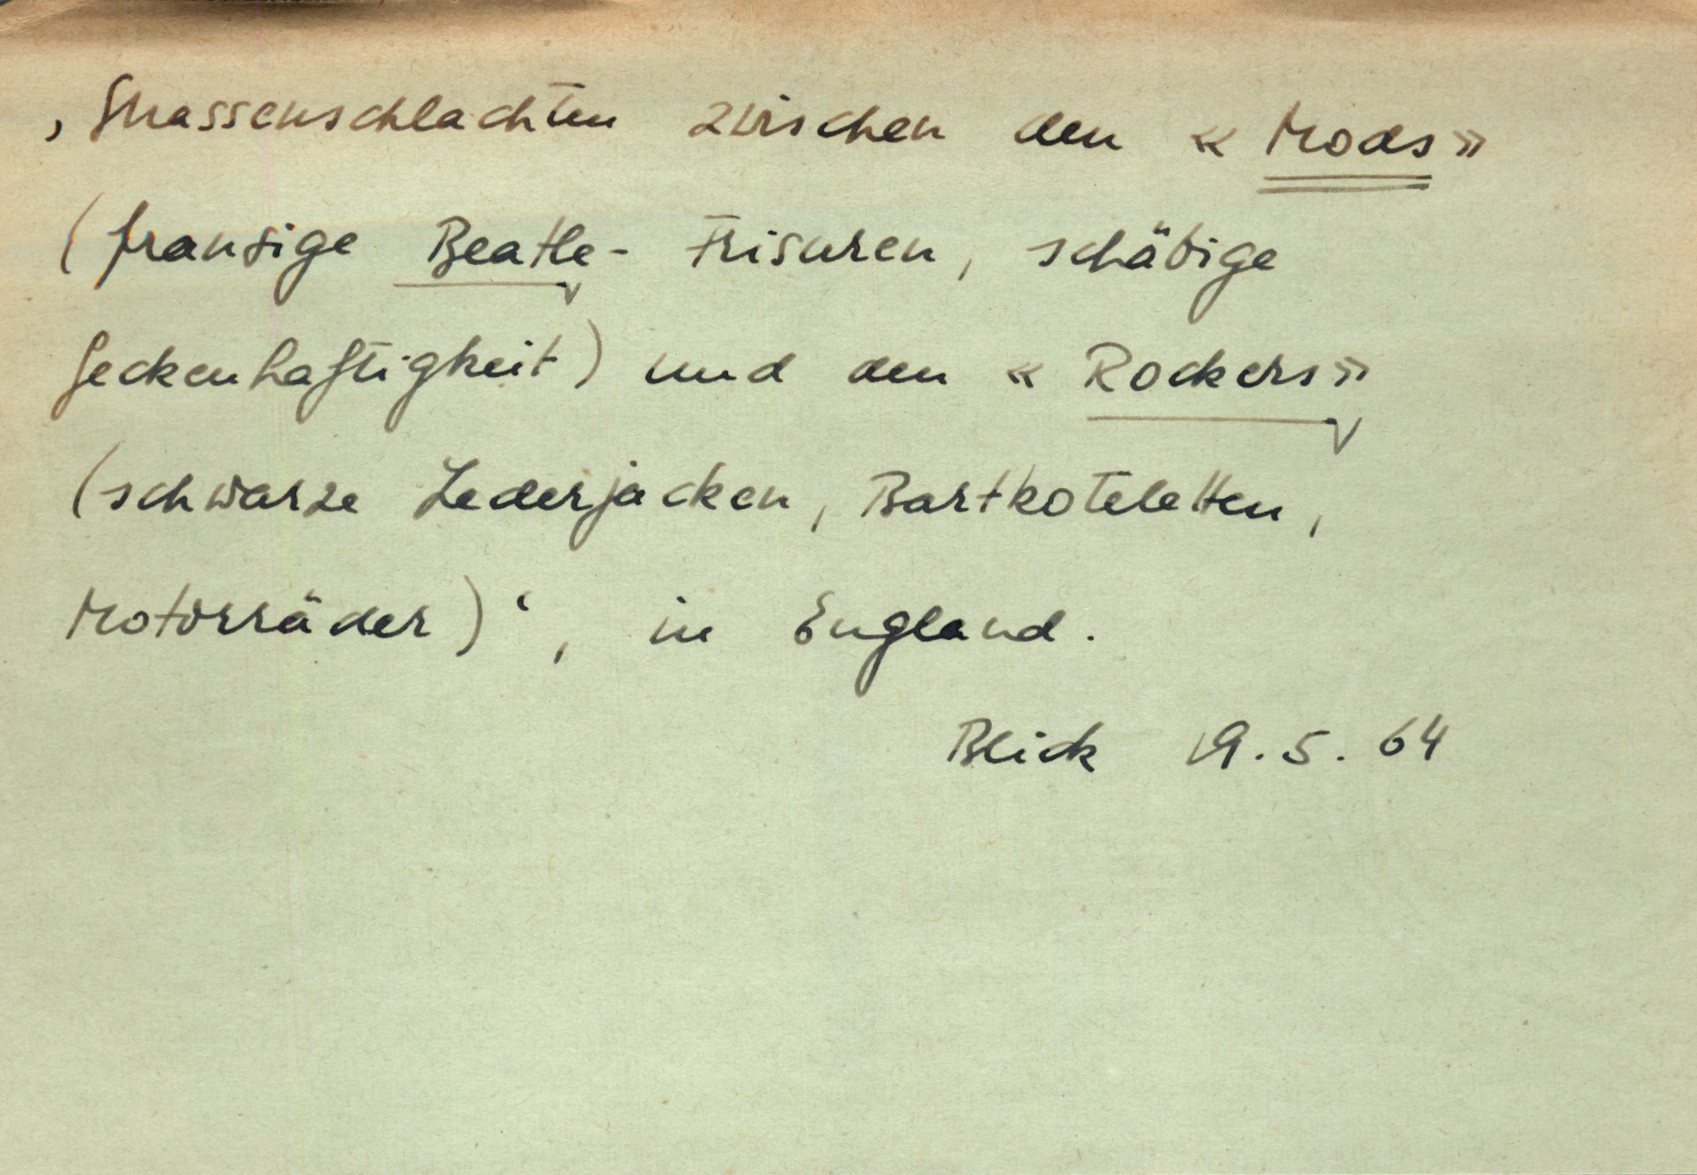 ‚Strassenschlachten zwischen den «Mods»
(fransige Beatle-Frisuren, schäbige
Geckenhaftigkeit) und den «Rockers»
(schwarze Lederjacken, Bartkoteletten,
Motorräder)‘, in England.
Blick 19.5.64